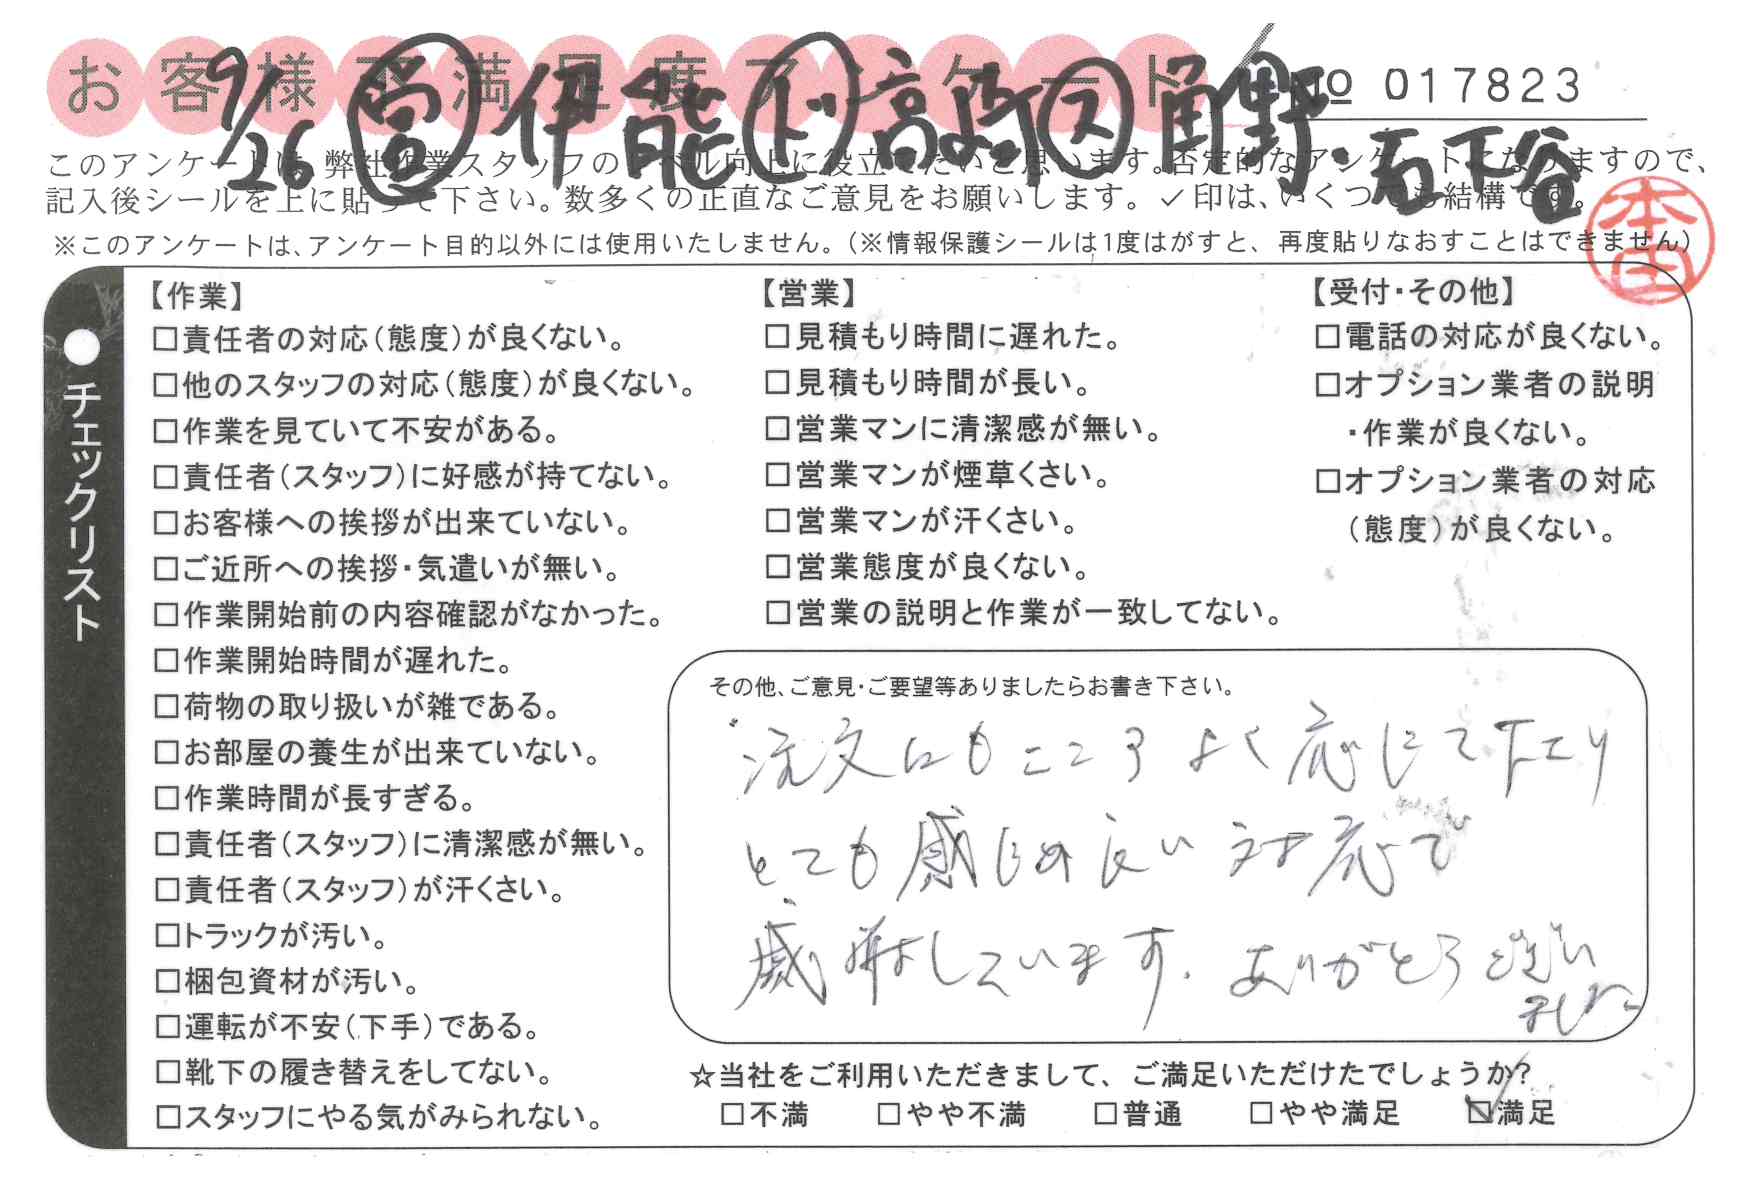 お客様不満足度アンケート
No 017823
9/26 営 伊能 ド 高崎 ス 角野・石下谷
このアンケートは、弊社作業スタッフのレベル向上に役立てたいと思います。否定的なアンケートになりますので、
記入後シールを上に貼って下さい。数多くの正直なご意見をお願いします。✓印は、いくつでも結構です。
※このアンケートは、アンケート目的以外には使用いたしません。（※情報保護シールは1度はがすと、再度貼りなおすことはできません）
本田
●チェックリスト
【作業】
□責任者の対応（態度）が良くない。
□他のスタッフの対応（態度）が良くない。
□作業を見ていて不安がある。
□責任者（スタッフ）に好感が持てない。
□お客様への挨拶が出来ていない。
□ご近所への挨拶・気遣いが無い。
□作業開始前の内容確認がなかった。
□作業開始時間が遅れた。
□荷物の取り扱いが雑である。
□お部屋の養生が出来ていない。
□作業時間が長すぎる。
□責任者（スタッフ）に清潔感が無い。
□責任者（スタッフ）が汗くさい。
□トラックが汚い。
□梱包資材が汚い。
□運転が不安（下手）である。
□靴下の履き替えをしてない。
□スタッフにやる気がみられない。
【営業】
□見積もり時間に遅れた。
□見積もり時間が長い。
□営業マンに清潔感が無い。
□営業マンが煙草くさい。
□営業マンが汗くさい。
□営業態度が良くない。
□営業の説明と作業が一致してない。
【受付・その他】
□電話の対応が良くない。
□オプション業者の説明
・作業が良くない。
□オプション業者の対応
（態度）が良くない。
その他、ご意見・ご要望等ありましたらお書き下さい。
注文にもこころよく応じて下さり
とても感じの良い対応で
感謝しています。ありがとうございました
☆当社をご利用いただきまして、ご満足いただけたでしょうか?
□不満 □やや不満 □普通 □やや満足 ☑満足